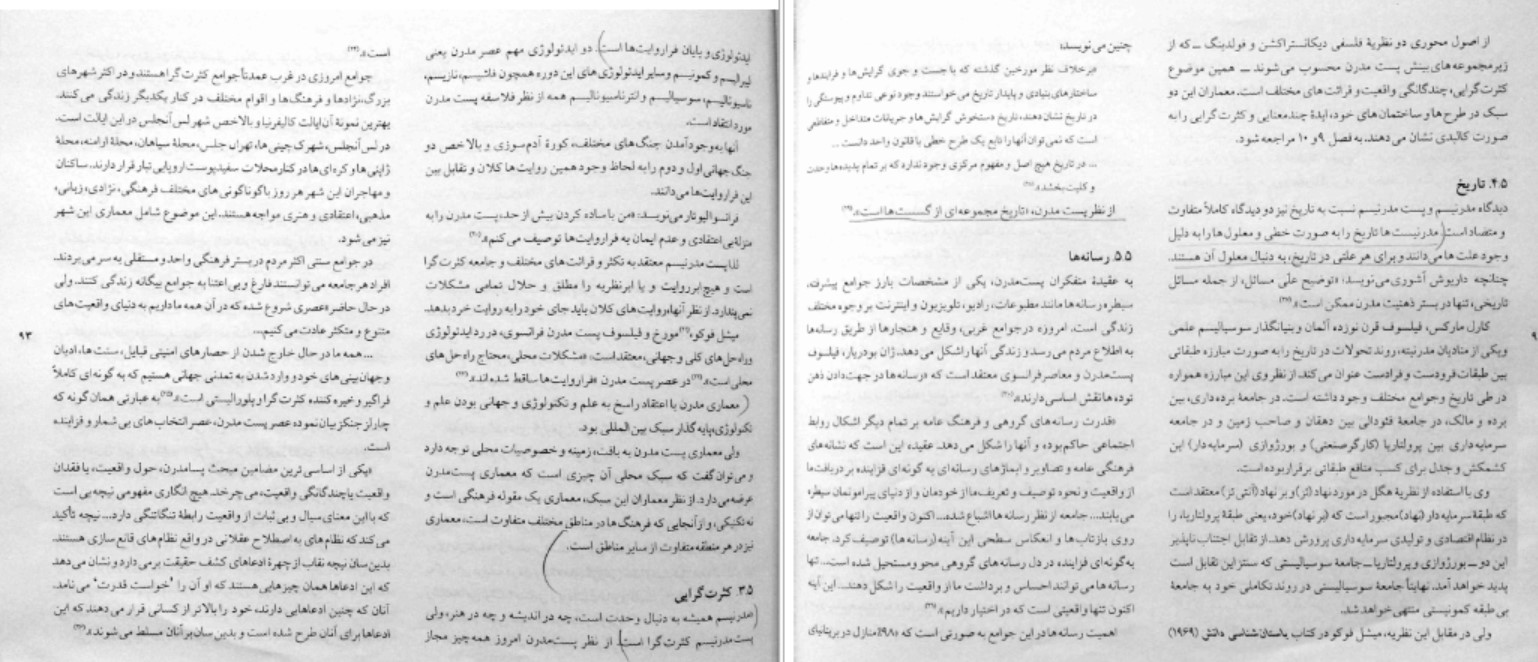 ایدئولوژی و پایان فراروایت‌ها است. دو ایدئولوژی مهم عصر مدرن یعنی
لیبرالیسم و کمونیسم و سایر ایدئولوژی های این دوره همچون فاشیسم، نازیسم،
ناسیونالیسم، سوسیالیسم و انترناسیونالیسم همه از نظر فلاسفه پست مدرن
مورد انتقاد است.
آنها به وجود آمدن جنگ های مختلف، کورهٔ آدم سوزی و بالاخص دو
جنگ جهانی اول و دوم را به لحاظ وجود همین روایت ها کلان و تقابل بین
این فراروایت ها می دانند.
فرانسوا لیوتار می نویسد: «من با ساده کردن بیش از حد، پست مدرن را به
منزلهٔ بی اعتقادی و عدم ایمان به فراروایت ها توصیف می کنم».(۲۰)
لذا پست مدرنیسم معتقد به تکثر و قرائت های مختلف و جامعه کثرت گرا
است و هیچ ابرروایت و یا ابرنظریه را مطلق و حلال تمامی مشکلات
نمی پندارد. از نظر آنها، روایت های کلان باید جای خود را به روایت خرد بدهد.
میشل فوکو،(۲۱) مورخ و فیلسوف پست مدرن فرانسوی، در رد ایدئولوژی
و راه حل های کلی و جهانی، معتقد است: «مشکلات محلی، محتاج راه حل های
محلی است».(۲۲) در عصر پست مدرن «فراروایت ها ساقط شده اند».(۲۳)
معماری مدرن با اعتقاد راسخ به علم و تکنولوژی و جهانی بودن علم و
تکنولوژی، پایه گذار سبک بین المللی بود.
ولی معماری پست مدرن به بافت، زمینه و خصوصیات محلی توجه دارد
و می توان گفت که سبک محلی آن چیزی است که معماری پست مدرن
عرضه می دارد. از نظر معماران این سبک، معماری یک مقوله فرهنگی است و
نه تکنیکی، و از آنجایی که فرهنگ ها در مناطق مختلف متفاوت است، معماری
نیز در هر منطقه متفاوت از سایر مناطق است.
۳.۵. کثرت گرایی
مدرنیسم همیشه به دنبال وحدت است، چه در اندیشه و چه در هنر، ولی
پست مدرنیسم کثرت گرا است. از نظر پست مدرن امروز همه چیز مجاز
است».(۲۴)
جوامع امروزی در غرب عمدتاً جوامع کثرت گرا هستند و در اکثر شهرهای
بزرگ، نژادها و فرهنگ ها و اقوام مختلف در کنار یکدیگر زندگی می کنند.
بهترین نمونهٔ آن ایالت کالیفرنیا و بالاخص شهر لس آنجلس در این ایالت است.
در لس آنجلس، شهرک چینی ها، تهران جلس، محلهٔ سیاهان، محلهٔ ارامنه، محلهٔ
ژاپنی ها و کره ای ها در کنار محلات سفیدپوست اروپایی تبار قرار دارند. ساکنان
و مهاجران این شهر هر روز با گوناگونی های مختلف فرهنگی، نژادی، زبانی،
مذهبی، اعتقادی و هنری مواجه هستند. این موضوع شامل معماری این شهر
نیز می شود.
در جوامع سنتی اکثر مردم در بستر فرهنگی واحد و مستقلی به سر می بردند.
افراد هر جامعه می توانستند فارغ و بی اعتنا به جوامع بیگانه زندگی کنند. ولی
در حال حاضر «عصری شروع شده که در آن همه ما داریم به دنیای واقعیت های
متنوع و متکثر عادت می کنیم...
... همه ما در حال خارج شدن از حصارهای امنیتی قبایل، سنت ها، ادیان
و جهان بینی های خود و وارد شدن به تمدنی جهانی هستیم که به گونه ای کاملاً
فراگیر و خیره کننده کثرت گرا و پلورالیستی است».(۲۵) به عبارتی همان گونه که
چارلز جنکز بیان نموده عصر پست مدرن، عصر انتخاب های بی شمار و فزاینده
است.
«یکی از اساسی ترین مضامین مبحث پسامدرن، حول واقعیت، یا فقدان
واقعیت یا چندگانگی واقعیت، می چرخد. هیچ انگاری مفهومی نیچه یی است
که با این معنای سیال و بی ثبات از واقعیت رابطهٔ تنگاتنگی دارد... نیچه تأکید
می کند که نظام های به اصطلاح عقلانی در واقع نظام های قانع سازی هستند.
بدین سان نیچه نقاب از چهرهٔ ادعاهای کشف حقیقت برمی دارد و نشان می دهد
که این ادعاها همان چیزهایی هستند که او آن را "خواست قدرت" می نامد.
آنان که چنین ادعاهایی دارند، خود را بالاتر از کسانی قرار می دهند که این
ادعاها برای آنان طرح شده است و بدین سان بر آنان مسلط می شوند».(۲۶)
۹۳
از اصول محوری دو نظریهٔ فلسفی دیکانستراکشن و فولدینگ ــ که از
زیرمجموعه های بینش پست مدرن محسوب می شوند ــ همین موضوع
کثرت گرایی، چندگانگی واقعیت و قرائت های مختلف است. معماران این دو
سبک در طرح ها و ساختمان های خود، ایدهٔ چندمعنایی و کثرت گرایی را به
صورت کالبدی نشان می دهند. به فصل ۹ و ۱۰ مراجعه شود.
۴.۵. تاریخ
دیدگاه مدرنیسم و پست مدرنیسم نسبت به تاریخ نیز دو دیدگاه کاملاً متفاوت
و متضاد است. مدرنیست ها تاریخ را به صورت خطی و معلول ها را به دلیل
وجود علت ها می دانند و برای هر علتی در تاریخ، به دنبال معلول آن هستند.
چنانچه داریوش آشوری می نویسد: «توضیح علّی مسائل، از جمله مسائل
تاریخی، تنها در بستر ذهنیت مدرن ممکن است».(۲۷)
کارل مارکس، فیلسوف قرن نوزده آلمان و بنیانگذار سوسیالیسم علمی
و یکی از منادیان مدرنیته، روند تحولات در تاریخ را به صورت مبارزه طبقاتی
بین طبقات فرودست و فرادست عنوان می کند. از نظر وی این مبارزه همواره
در طی تاریخ و جوامع مختلف وجود داشته است. در جامعهٔ برده داری، بین
برده و مالک، در جامعهٔ فئودالی بین دهقان و صاحب زمین و در جامعه
سرمایه داری بین پرولتاریا (کارگر صنعتی) و بورژوازی (سرمایه دار) این
کشمکش و جدل برای کسب منافع طبقاتی برقرار بوده است.
وی با استفاده از نظریهٔ هگل در مورد نهاد (تز) و بر نهاد (آنتی تز) معتقد است
که طبقهٔ سرمایه دار (نهاد) مجبور است که (بر نهاد) خود، یعنی طبقهٔ پرولتاریا، را
در نظام اقتصادی و تولیدی سرمایه داری پرورش دهد. از تقابل اجتناب ناپذیر
این دو ــ بورژوازی و پرولتاریا ــ جامعهٔ سوسیالیستی که سنتز این تقابل است
پدید خواهد آمد. نهایتاً جامعهٔ سوسیالیستی در روند تکاملی خود به جامعهٔ
بی طبقه کمونیستی منتهی خواهد شد.
ولی در مقابل این نظریه، میشل فوکو در کتاب باستان شناسی دانش (۱۹۶۹)
چنین می نویسد:
«برخلاف نظر مورخین گذشته که با جست و جوی گرایش ها و فرایندها و
ساختارهای بنیادی و پایدار تاریخ می خواستند وجود نوعی تداوم و پیوستگی را
در تاریخ نشان دهند، تاریخ دستخوش گرایش ها و جریانات متداخل و متقاطعی
است که نمی توان آنها را تابع یک طرح خطی با قانون واحد دانست ...
... در تاریخ هیچ اصل و مفهوم مرکزی وجود ندارد که بر تمام پدیده ها وحدت
و کلیت بخشد».(۲۸)
از نظر پست مدرن، «تاریخ مجموعه ای از گسست ها است».(۲۹)
۵.۵. رسانه‌ها
به عقیدهٔ متفکران پست مدرن، یکی از مشخصات بارز جوامع پیشرفته،
سیطره رسانه ها مانند مطبوعات، رادیو، تلویزیون و اینترنت بر وجوه مختلف
زندگی است. امروزه در جوامع غربی، وقایع و هنجارها از طریق رسانه‌ها
به اطلاع مردم می رسد و زندگی آنها را شکل می دهد. ژان بودریار، فیلسوف
پست مدرن و معاصر فرانسوی معتقد است که «رسانه ها در جهت دادن ذهن
توده ها نقش اساسی دارند».(۳۰)
«قدرت رسانه های گروهی و فرهنگ عامه بر تمام دیگر اشکال روابط
اجتماعی حاکم بوده و آنها را شکل می دهد. عقیده این است که نشانه های
فرهنگی عامه و تصاویر و ایماژهای رسانه ای به گونه ای فزاینده بر دریافت ما
از واقعیت و نحوه توصیف و تعریف ما از خودمان و از دنیای پیرامونمان سیطره
می یابند... جامعه از نظر رسانه ها اشباع شده... اکنون واقعیت را تنها می توان از
روی بازتاب ها و انعکاس سطحی این آینه (رسانه ها) توصیف کرد. جامعه
به گونه ای فزاینده در دل رسانه های گروهی محو و مستحیل شده است... تنها
رسانه ها می توانند احساس و برداشت ما از واقعیت را شکل دهند... این آینه
اکنون تنها واقعیتی است که در اختیار داریم».(۳۱)
اهمیت رسانه ها در این جوامع به صورتی است که «۹۸٪ منازل در بریتانیای
۹